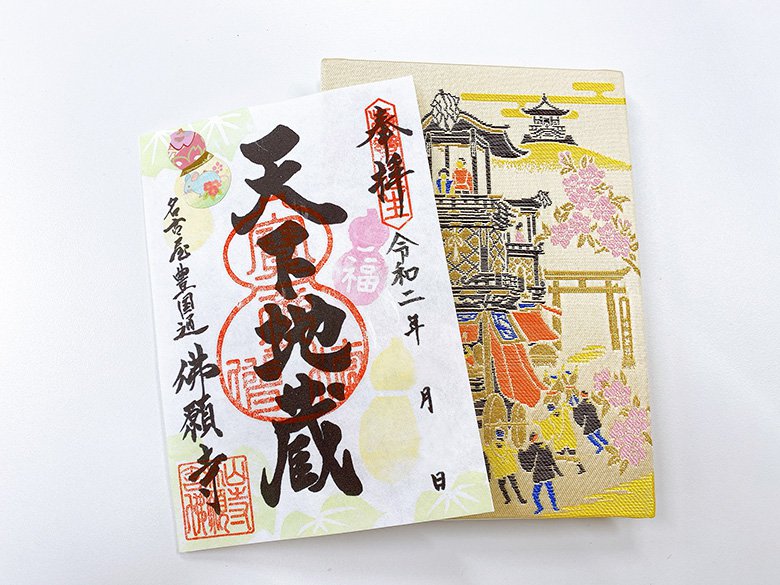 奉拝
令和二年 月 日
天下地蔵
福
名古屋豊国通 佛願寺